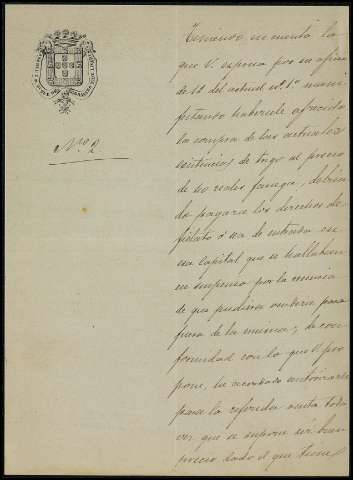 Nº 2.
Teniendo en cuenta lo
que V. expone por su oficio
de 12 del actual nº 1º mani-
festando haberle ofrecido
la compra de las actuales
existencias de trigo al precio
de 40 reales fanega, debién
do pagarse los derechos de
fielato ó sea de entrada en
esa capital que se hallaban
en suspenso por la
de que pudiera venderse para
fuera de la misma; de con
formidad con lo que V. pro
pone, he acordado autorizarle
para la referida venta toda
vez que se supone un buen
precio dado el que tiene